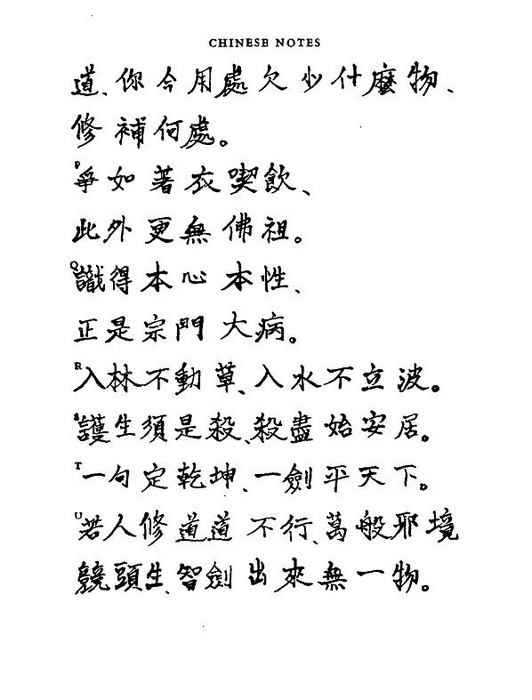 CHINESE NOTES
道、你今用處欠少什麼物、
修補何處。
P爭如著衣喫飲、
此外更無佛祖。
Q識得本心本性、
正是宗門大病。
R入林不動草、入水不立波。
S護生須是殺、殺盡始安居。
T一句定乾坤、一劍平天下。
U若人修道道不行、萬般邪境
競頭生、智劍出來無一物。